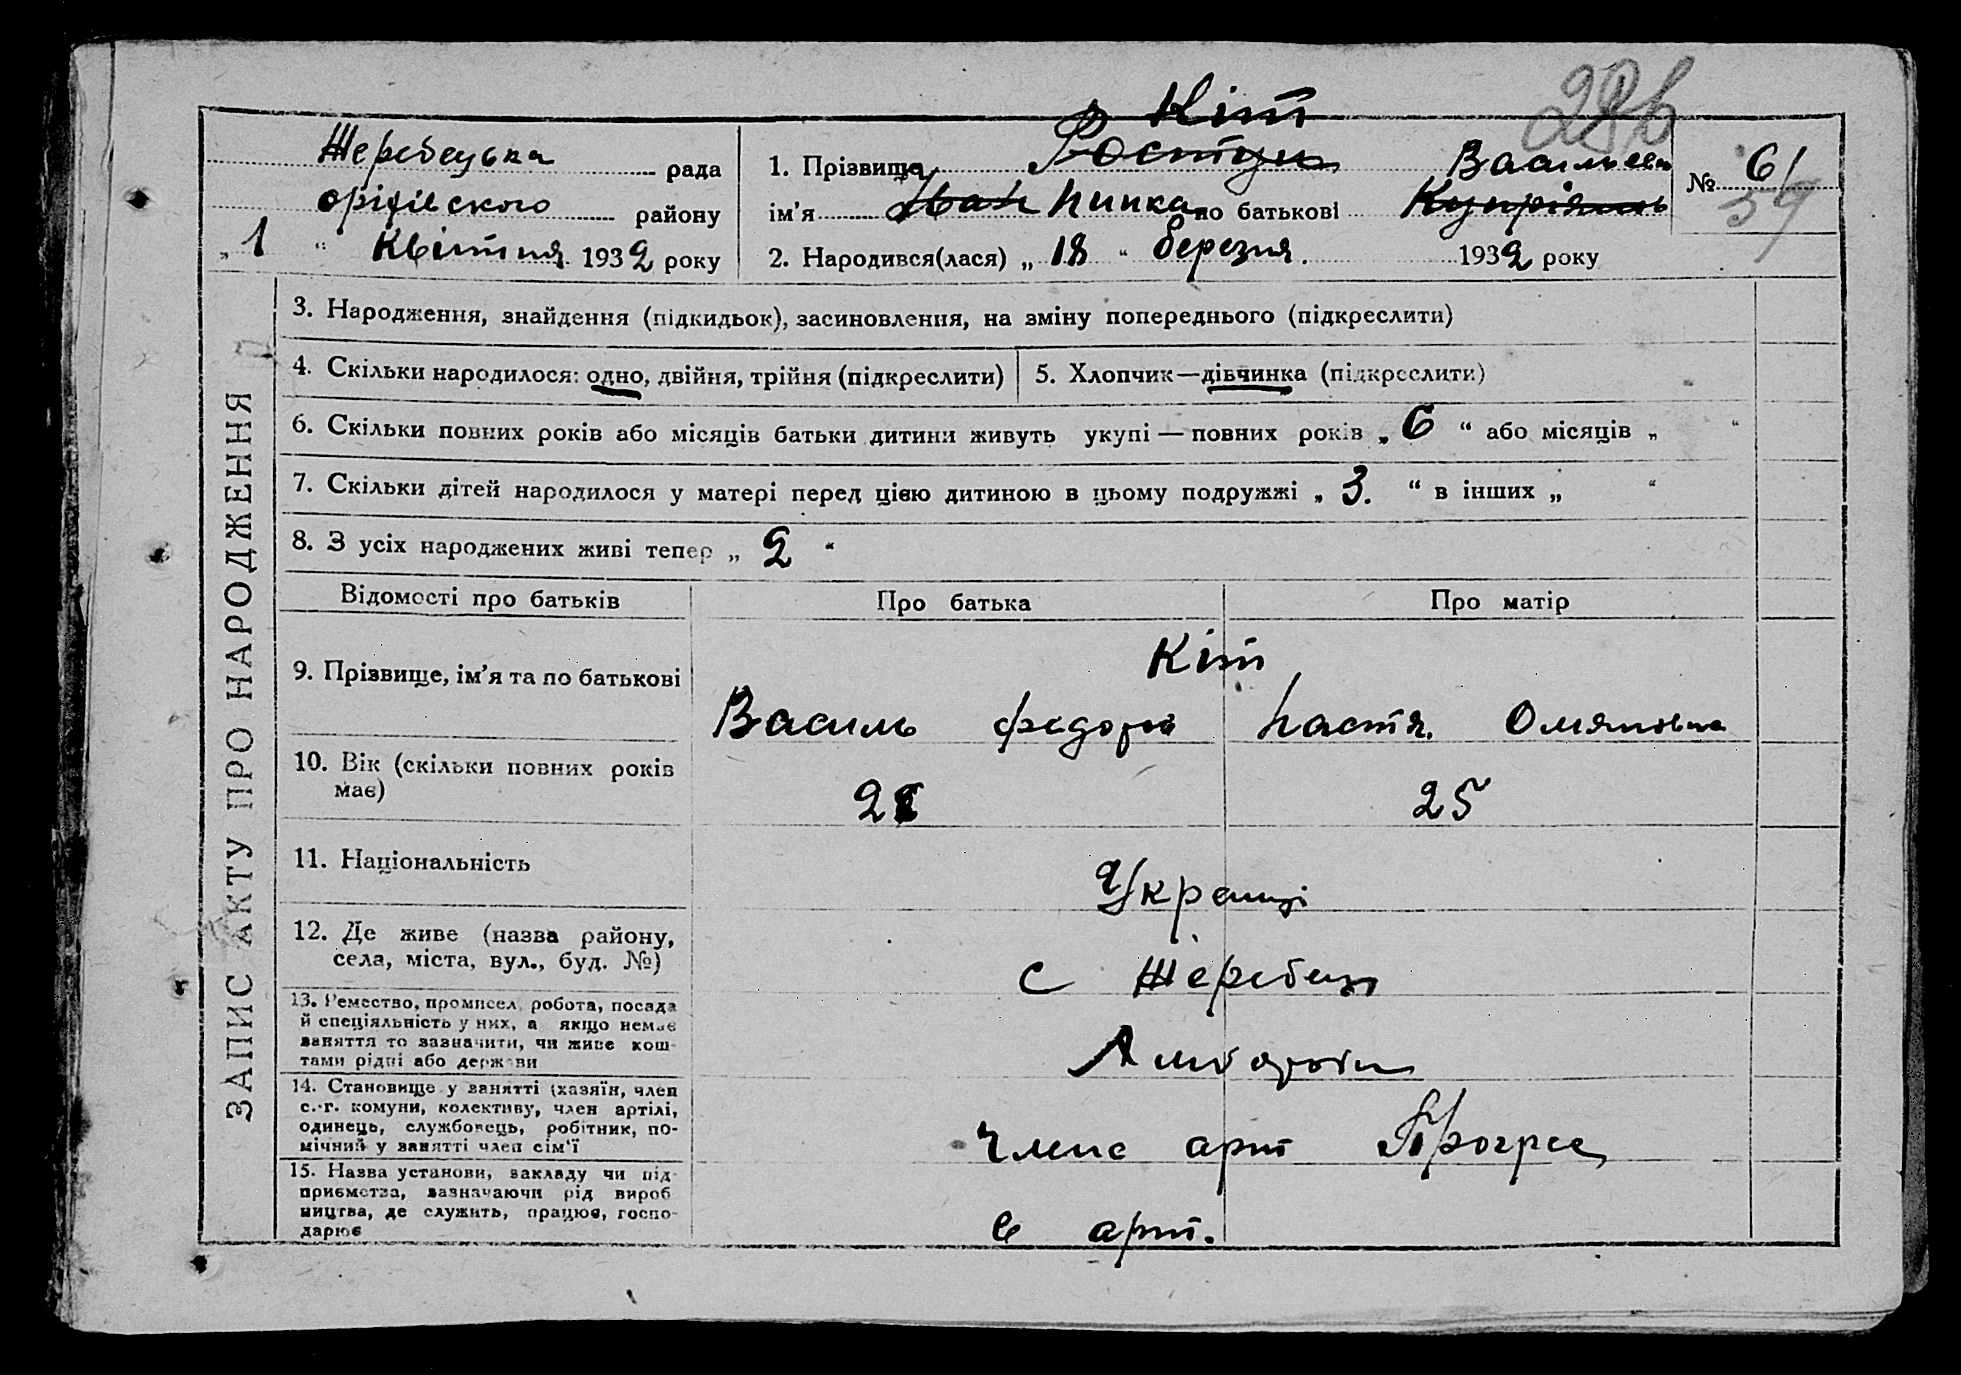 28б
Кіт
Жеребецька рада
1. Прізвище Ростун Васильевн
№ 61
59
оріхівского району
ім'я Іван Нинка по батькові Купріянов
„ 1 “ Квітня 1932 року
2. Народився(лася) „ 18 “ березня. 1932 року
ЗАПИС АКТУ ПРО НАРОДЖЕННЯ
3. Народження, знайдення (підкидьок), засиновлення, на зміну попереднього (підкреслити)
4. Скільки народилося: одно, двійня, трійня (підкреслити)
5. Хлопчик—дівчинка (підкреслити)
6. Скільки повних років або місяців батьки дитини живуть укупі — повних років „ 6 “ або місяців „ “
7. Скільки дітей народилося у матері перед цією дитиною в цьому подружжі „ 3. “ в інших „ “
8. З усіх народжених живі тепер „ 2 “
Відомості про батьків
Про батька
Про матір
9. Прізвище, ім'я та по батькові
Кіт
Василь Федоров
Настя
10. Вік (скільки повних років
має)
25
11. Національність
Українці
12. Де живе (назва району,
села, міста, вул., буд. №)
с Жеребець
13. Ремество, промисел, робота, посада
й спеціяльність у них, а якщо немає
заняття то зазначити, чи живе кош-
тами рідні або держави
Хлібороби
14. Становище у занятті (хазяїн, член
с.-г. комуни, колективу, член артілі,
одинець, службовець, робітник, по-
мічний у занятті член сім'ї
Члене арт Прогрес
15. Назва установи, закладу чи під-
приємства, зазначаючи рід вироб-
ництва, де служить, працює, госпо-
дарює
в арт.